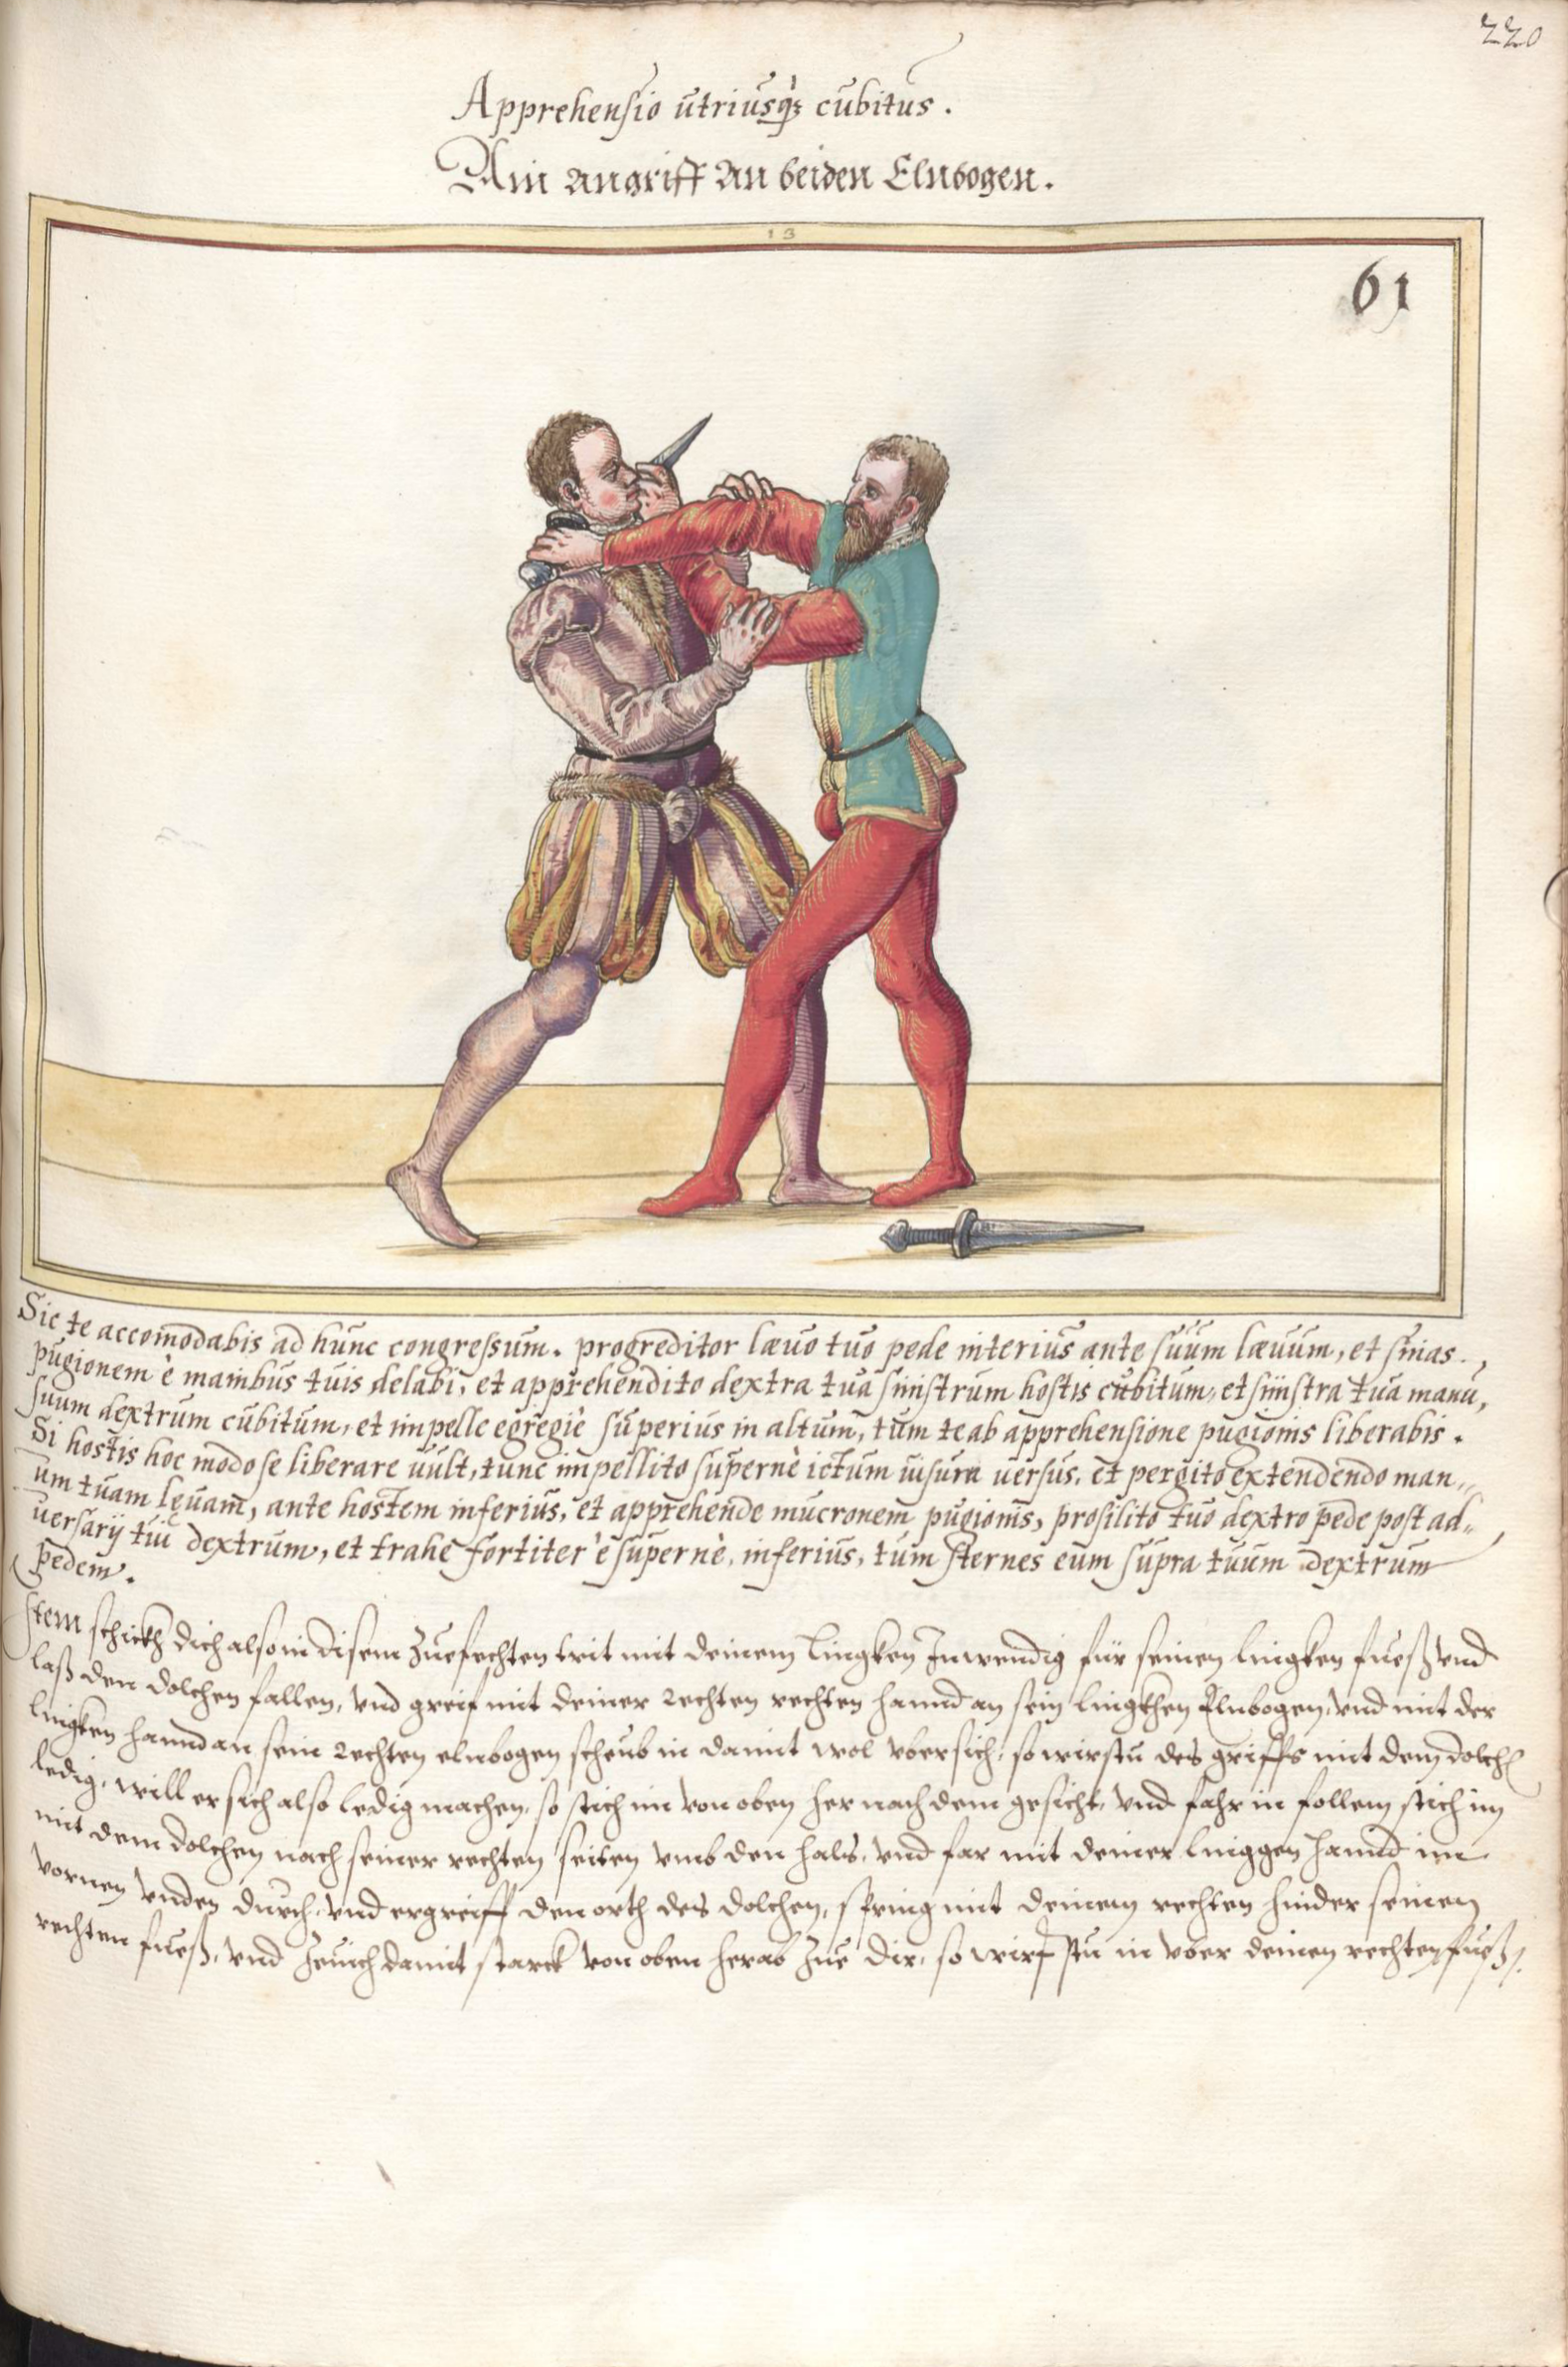 220
Apprehensio utriusq́ꝫ cubitus.
Ain angriff an beiden Elnbogen.
13
61
Sic te accomodabis ad hunc congressum. progreditor lævo tuo pede interius ante suum lævum, et sinas
pugionem è manibus tuis delabi, et apprehendito dextra tua sinistrum hostis cubitum, et sinistra tua manu,
suum dextrum cubitum, et impelle egregiè superius in altum, tum te ab apprehensione pugionis liberabis.
Si hostis hoc modo se liberare uult, tunc impellito supernè ictum uisum uersus, et pergito extendendo man„
um tuam lęuam, ante hostem inferius, et apprehende mucronem pugionis, prosilito tuo dextro pede post ad„
uersarij tui dextrum, et trahe fortiter è supernè, inferius, tum sternes eum supra tuum dextrum
pedem.
Item schickh dich also in disem Zuefechten trit mit deinem lingken Inwendig für seinen lingken fueß vnd
laß den dolchen fallen, vnd greif mit deiner rechten rechten hannd an sein lingkhen Elnbogen, vnd mit der
lingken hannd an sein rechten elnbogen scheub in damit wol vbersich, so wirstu des griffs mit dem dolch
ledig, will er sich also ledig machen, so stich im von oben her nach dem gesicht, vnd fahr in follem stich im
mit dem dolchen nach seiner rechten seiten vmb den hals, vnd far mit deiner linggen hannd im
vornen vnden durch, vnd ergreiff den orth des dolchen, spring mit deinem rechten hinder seinen
rechten fueß, vnd zeuich damit starck von oben herab zue dir, so wirfstu in vber deinen rechten fueß.